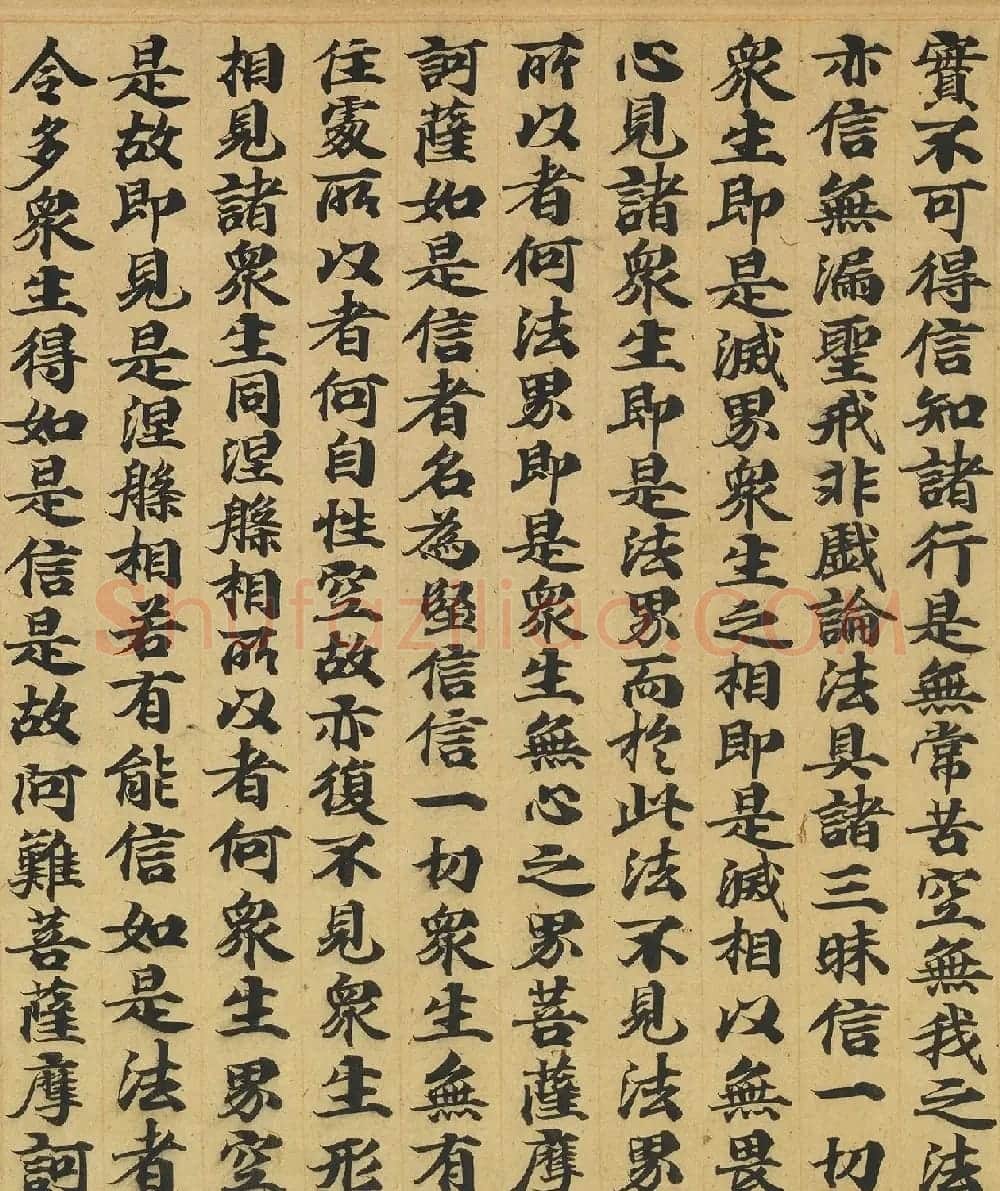 實不可得信知諸行是無常苦空無我之法
亦信無漏聖戒非戲論法具諸三昧信一切
衆生即是滅界衆生之相即是滅相以無畏
心見諸衆生即是法界而於此法不見法界
所以者何法界即是衆生無心之界菩薩摩
訶薩如是信者名為堅信信一切衆生無有
住處所以者何自性空故亦復不見衆生形
相見諸衆生同涅槃相所以者何衆生界空
是故即見是涅槃相若有能信如是法者
令多衆生得如是信是故阿難菩薩摩訶
Shufaziliao.COM